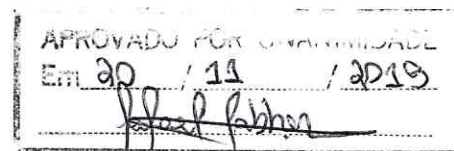 APROVADO POR UNANIMIDADE
Em 20 / 11 / 2019